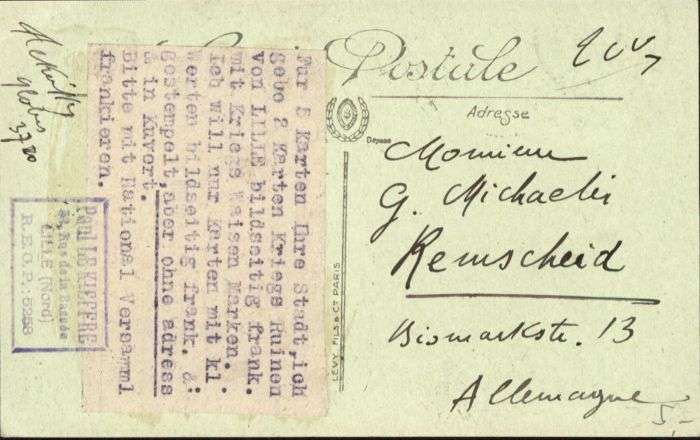 Carte Postale
Adresse
Monsieur
G. Michaelis
Remscheid
Bismarkstr. 13
Allemagne
5,-
LEVY FILS & Cº PARIS
Für 5 Karten Ihre Stadt,ich
gebe 2 Karten Kriegs Ruinen
von LILLE bildseitig frank.
mit Kriegs Waisen Marken.
ich will nur Karten mit kl
Werten bildseitig frank. &
gestempelt,aber ohne adress
& in Kuvert.
Bitte mit National Versamml
frankieren.
Paul LE
LILLE (Nord)
R.E.O.P.: 5258
globus